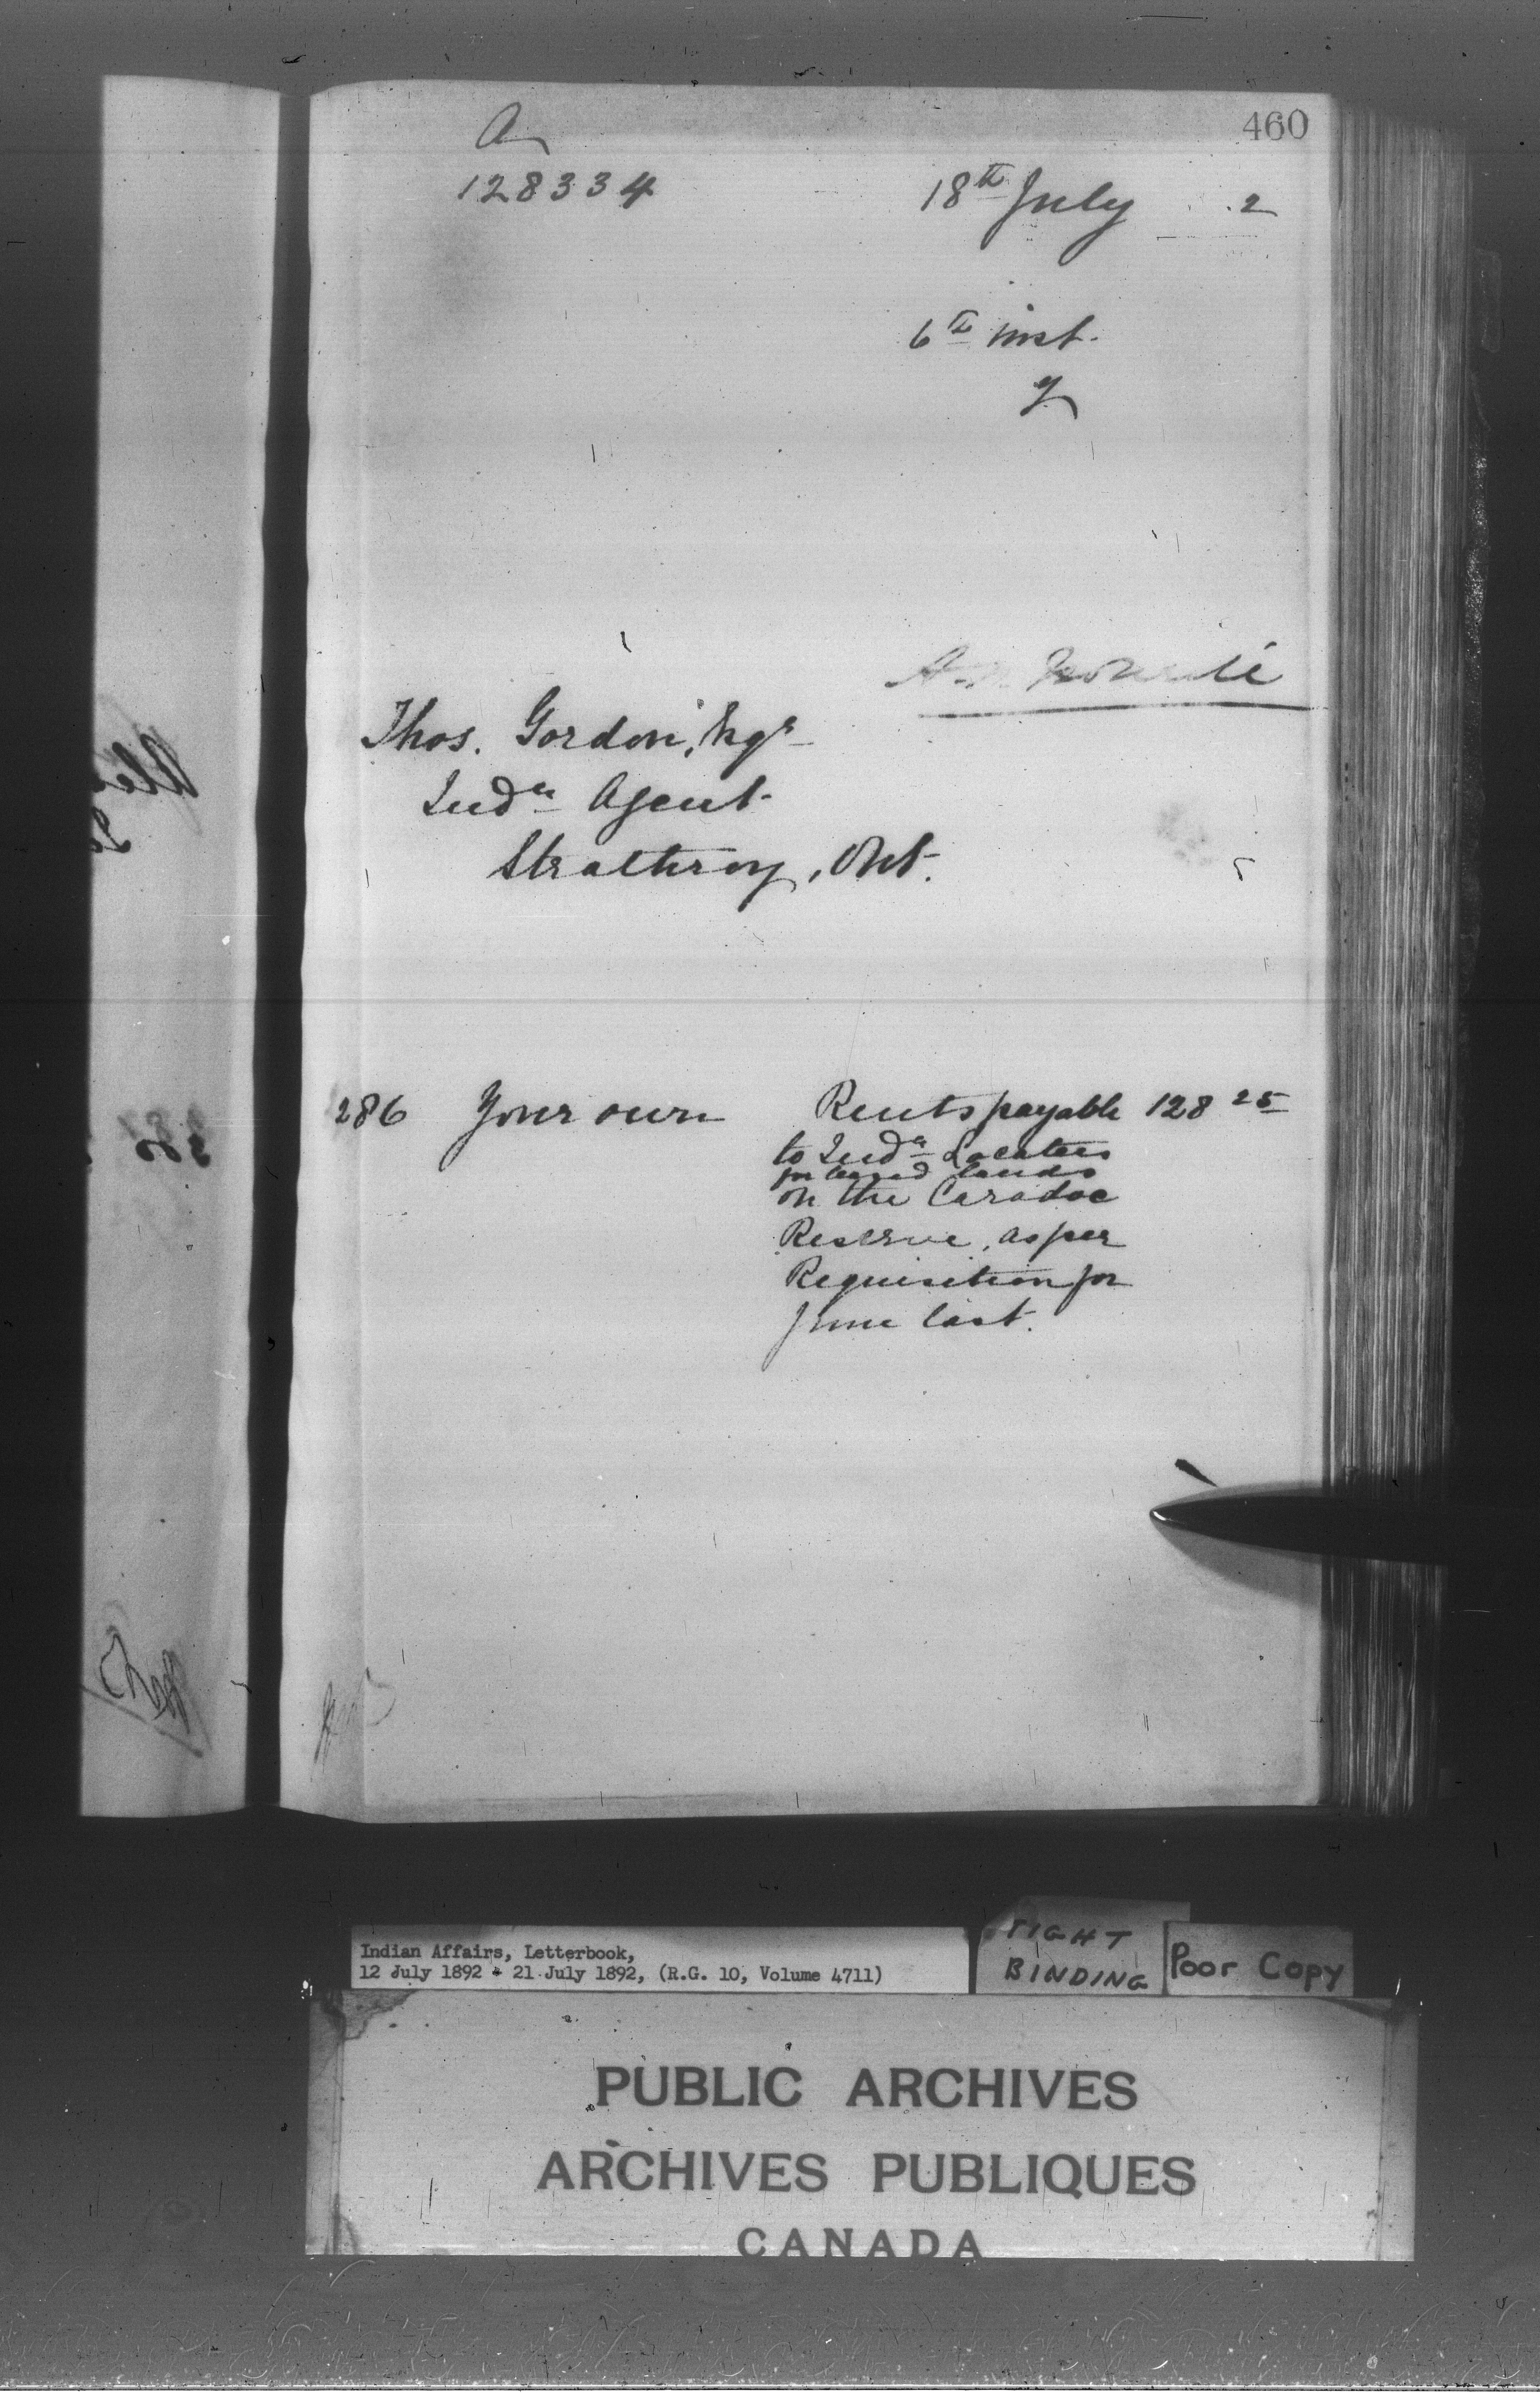 460
a
128334
18th July 2
6th inst.
Thos. Gordon, Esqr
Indn Agent
Strathroy, Ont.
286 Your own Rents payable 128 25
to Indn Locatees
for leased lands
on the Caradoc
Reserve, as per
Requisition for
June last.
Indian Affairs, Letterbook,
12 July 1892 - 21 July 1892, (R.G. 10, Volume 4711)
TIGHT
BINDING
Poor Copy
PUBLIC ARCHIVES
ARCHIVES PUBLIQUES
CANADA